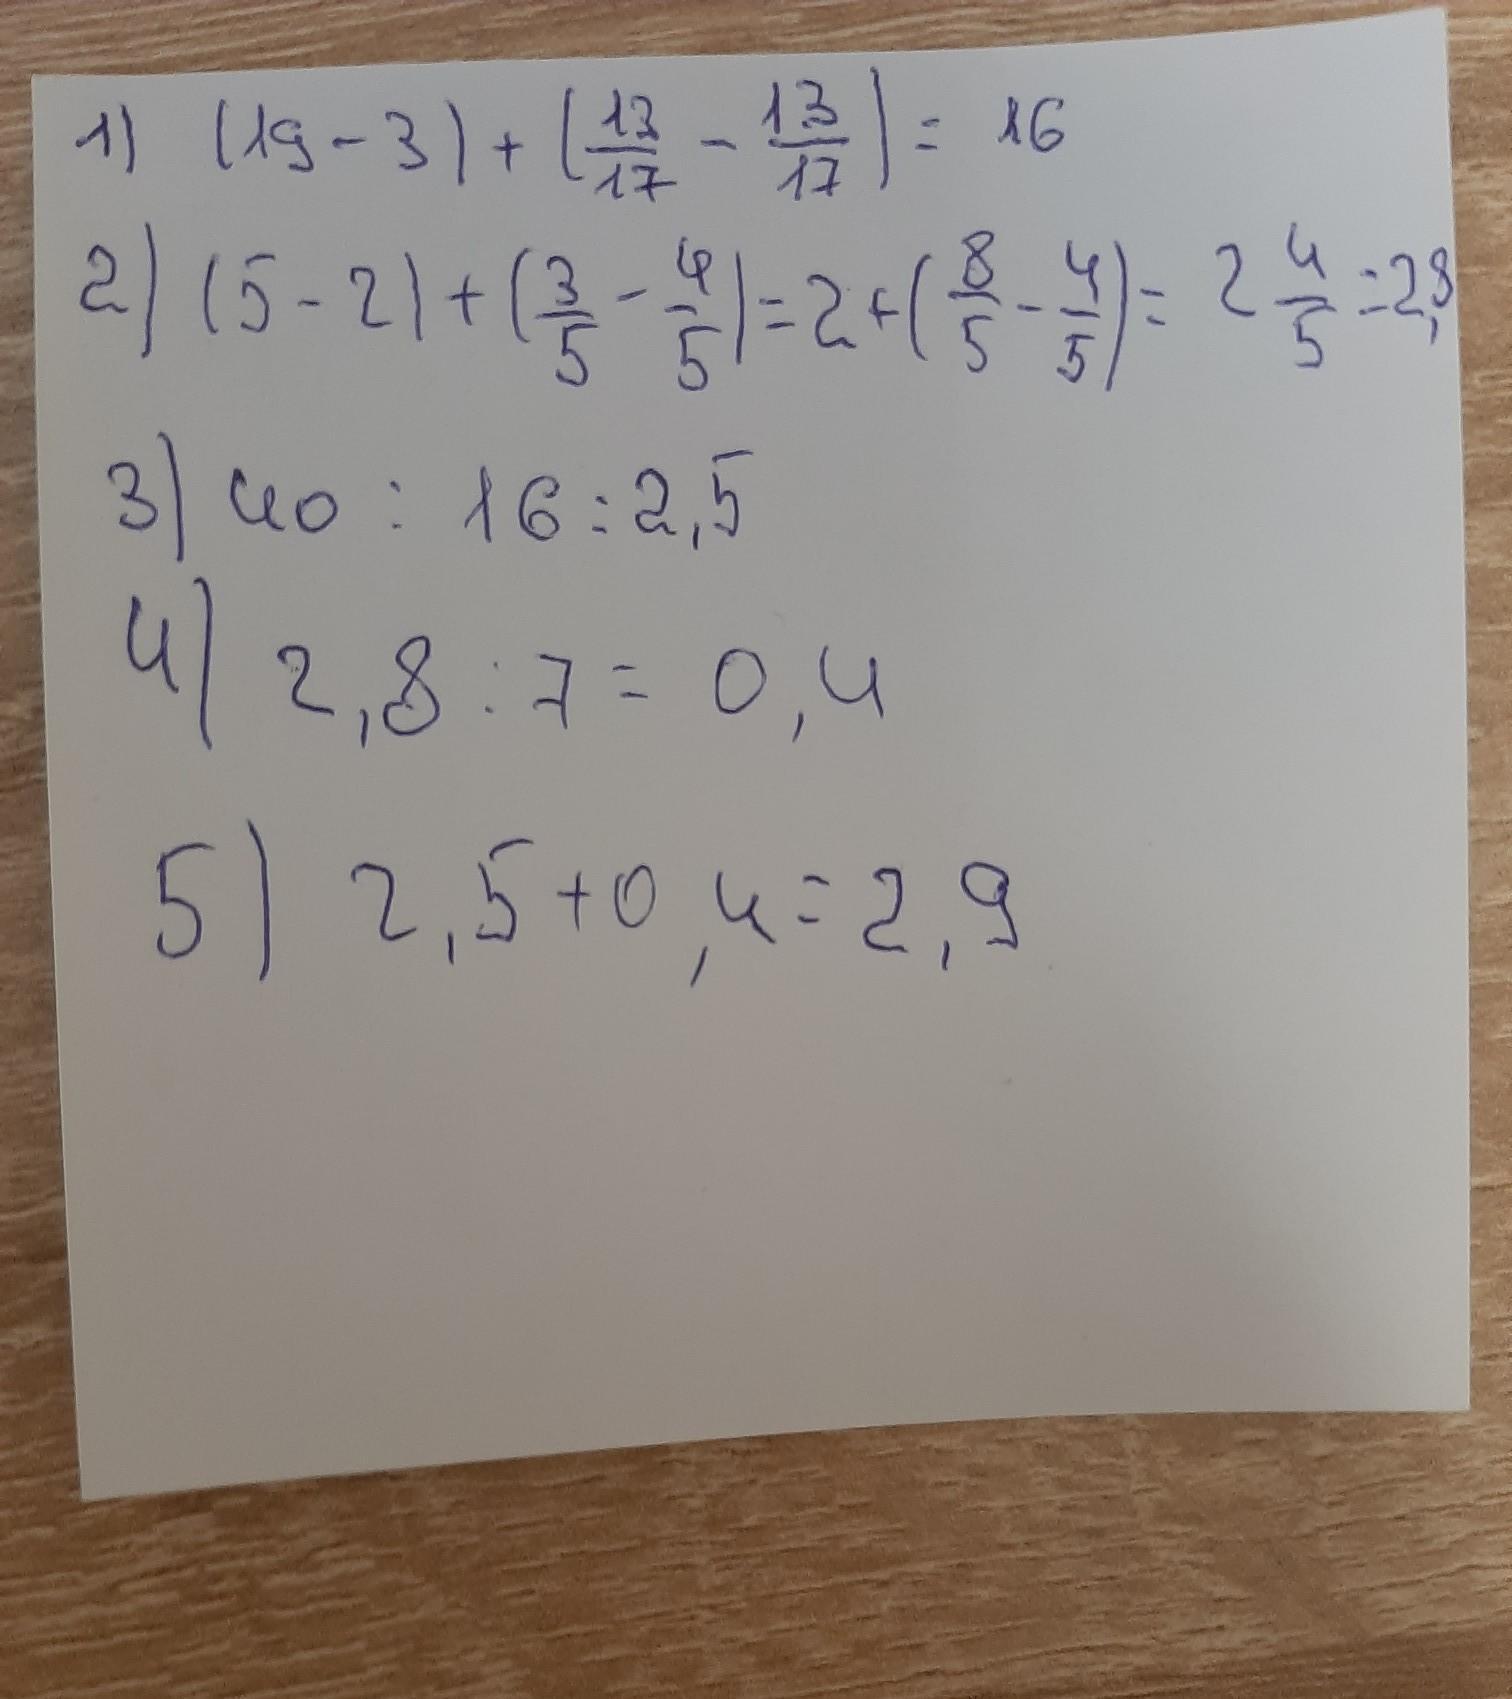 1) (19 - 3) + (13/17 - 13/17) = 16
2) (5 - 2) + (3/5 - 4/5) = 2 + (8/5 - 4/5) = 2 4/5 = 2,8
3) 40 : 16 = 2,5
4) 2,8 : 7 = 0,4
5) 2,5 + 0,4 = 2,9